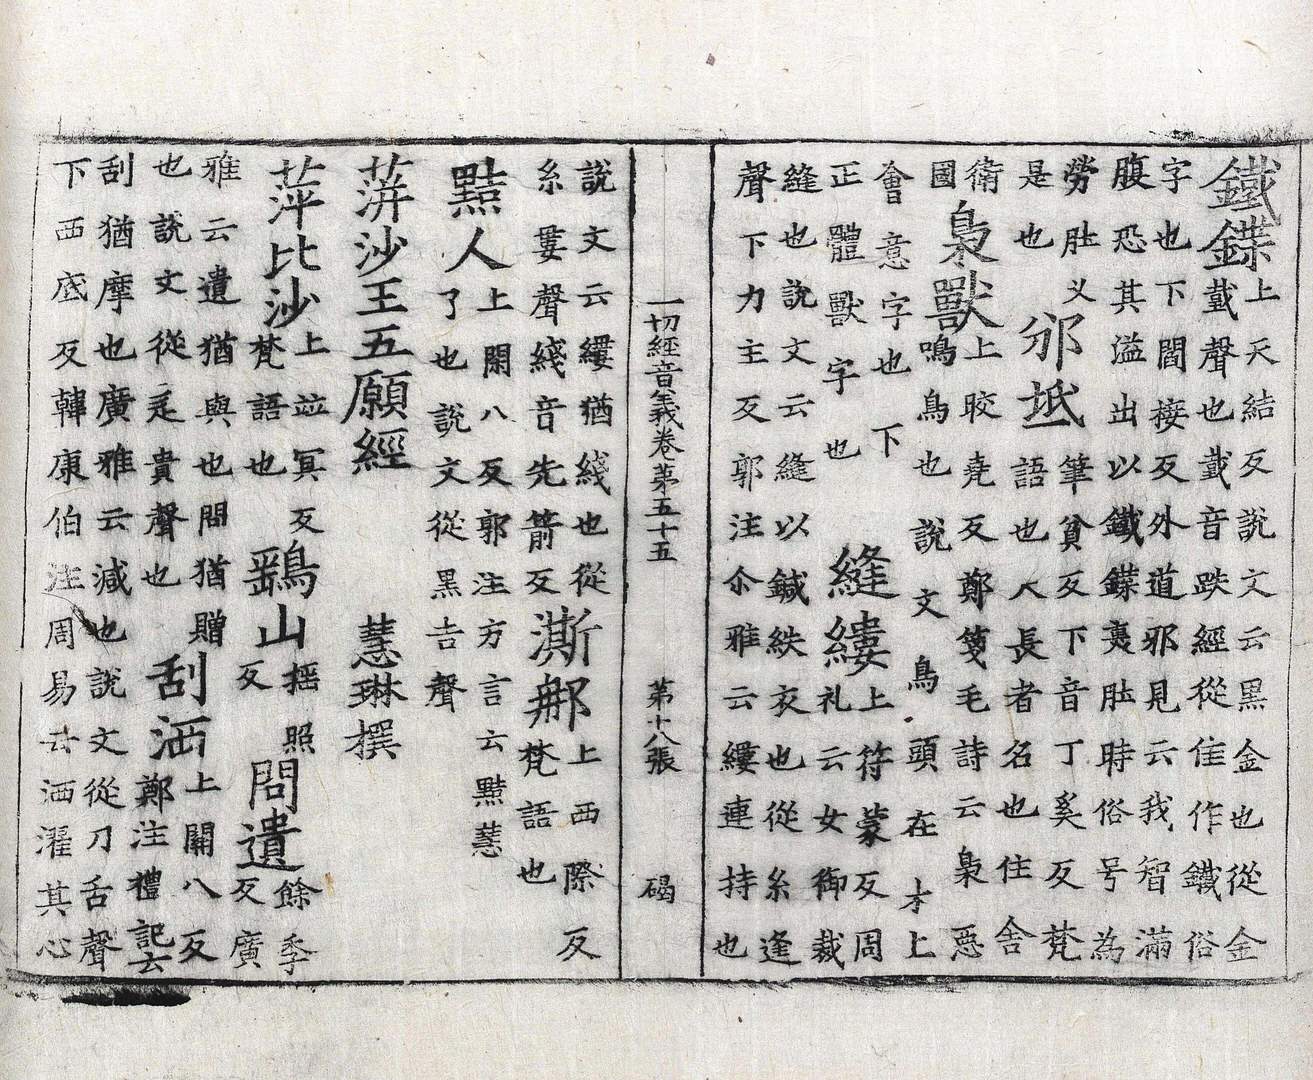 鐵鍱上天結反說文云黑金也從金
戴聲也戴音跌經從隹作鐵俗
字也下閻接反外道邪見云我智滿
腹恐其溢出以鐵鍱裹肚時俗号為
勞肚义
是也
邠坻筆貧反下音丁奚反梵
語也大長者名也住舍
衛
國
梟獸上咬堯反鄭箋毛詩云梟惡
鳴鳥也說文鳥頭在木上
會意字也下
正體獸字也
縫縷上符蒙反周
礼云女御裁
縫也說文云縫以鍼紩衣也從糸逢
聲下力主反郭注尒雅云縷連持也
一切經音義卷第五十五 第十八張 碣
說文云縷猶綫也從
糸婁聲綫音先箭反
澌郍上西際反
梵語也
黠人上閑八反郭注方言云黠慧
了也說文從黑吉聲
蓱沙王五願經 慧琳撰
萍比沙上並冥反
梵語也
鷂山搖照
反
問遺餘季
反廣
雅云遺猶與也問猶贈
也說文從辵貴聲也
刮洒上關八反
鄭注禮記云
刮猶摩也廣雅云減也說文從刀舌聲
下西底反韓康伯注周易云洒濯其心